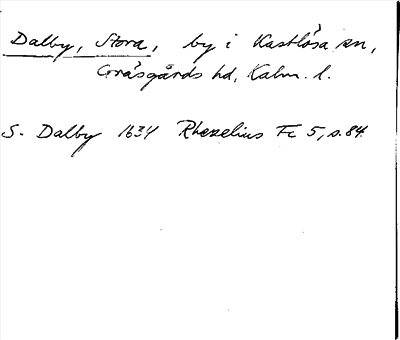 Dalby, Stora, by i Kastlösa sn,
Gräsgårds hd, Kalm. l.
S. Dalby 1634 Rhezelius Fc 5, s. 84.